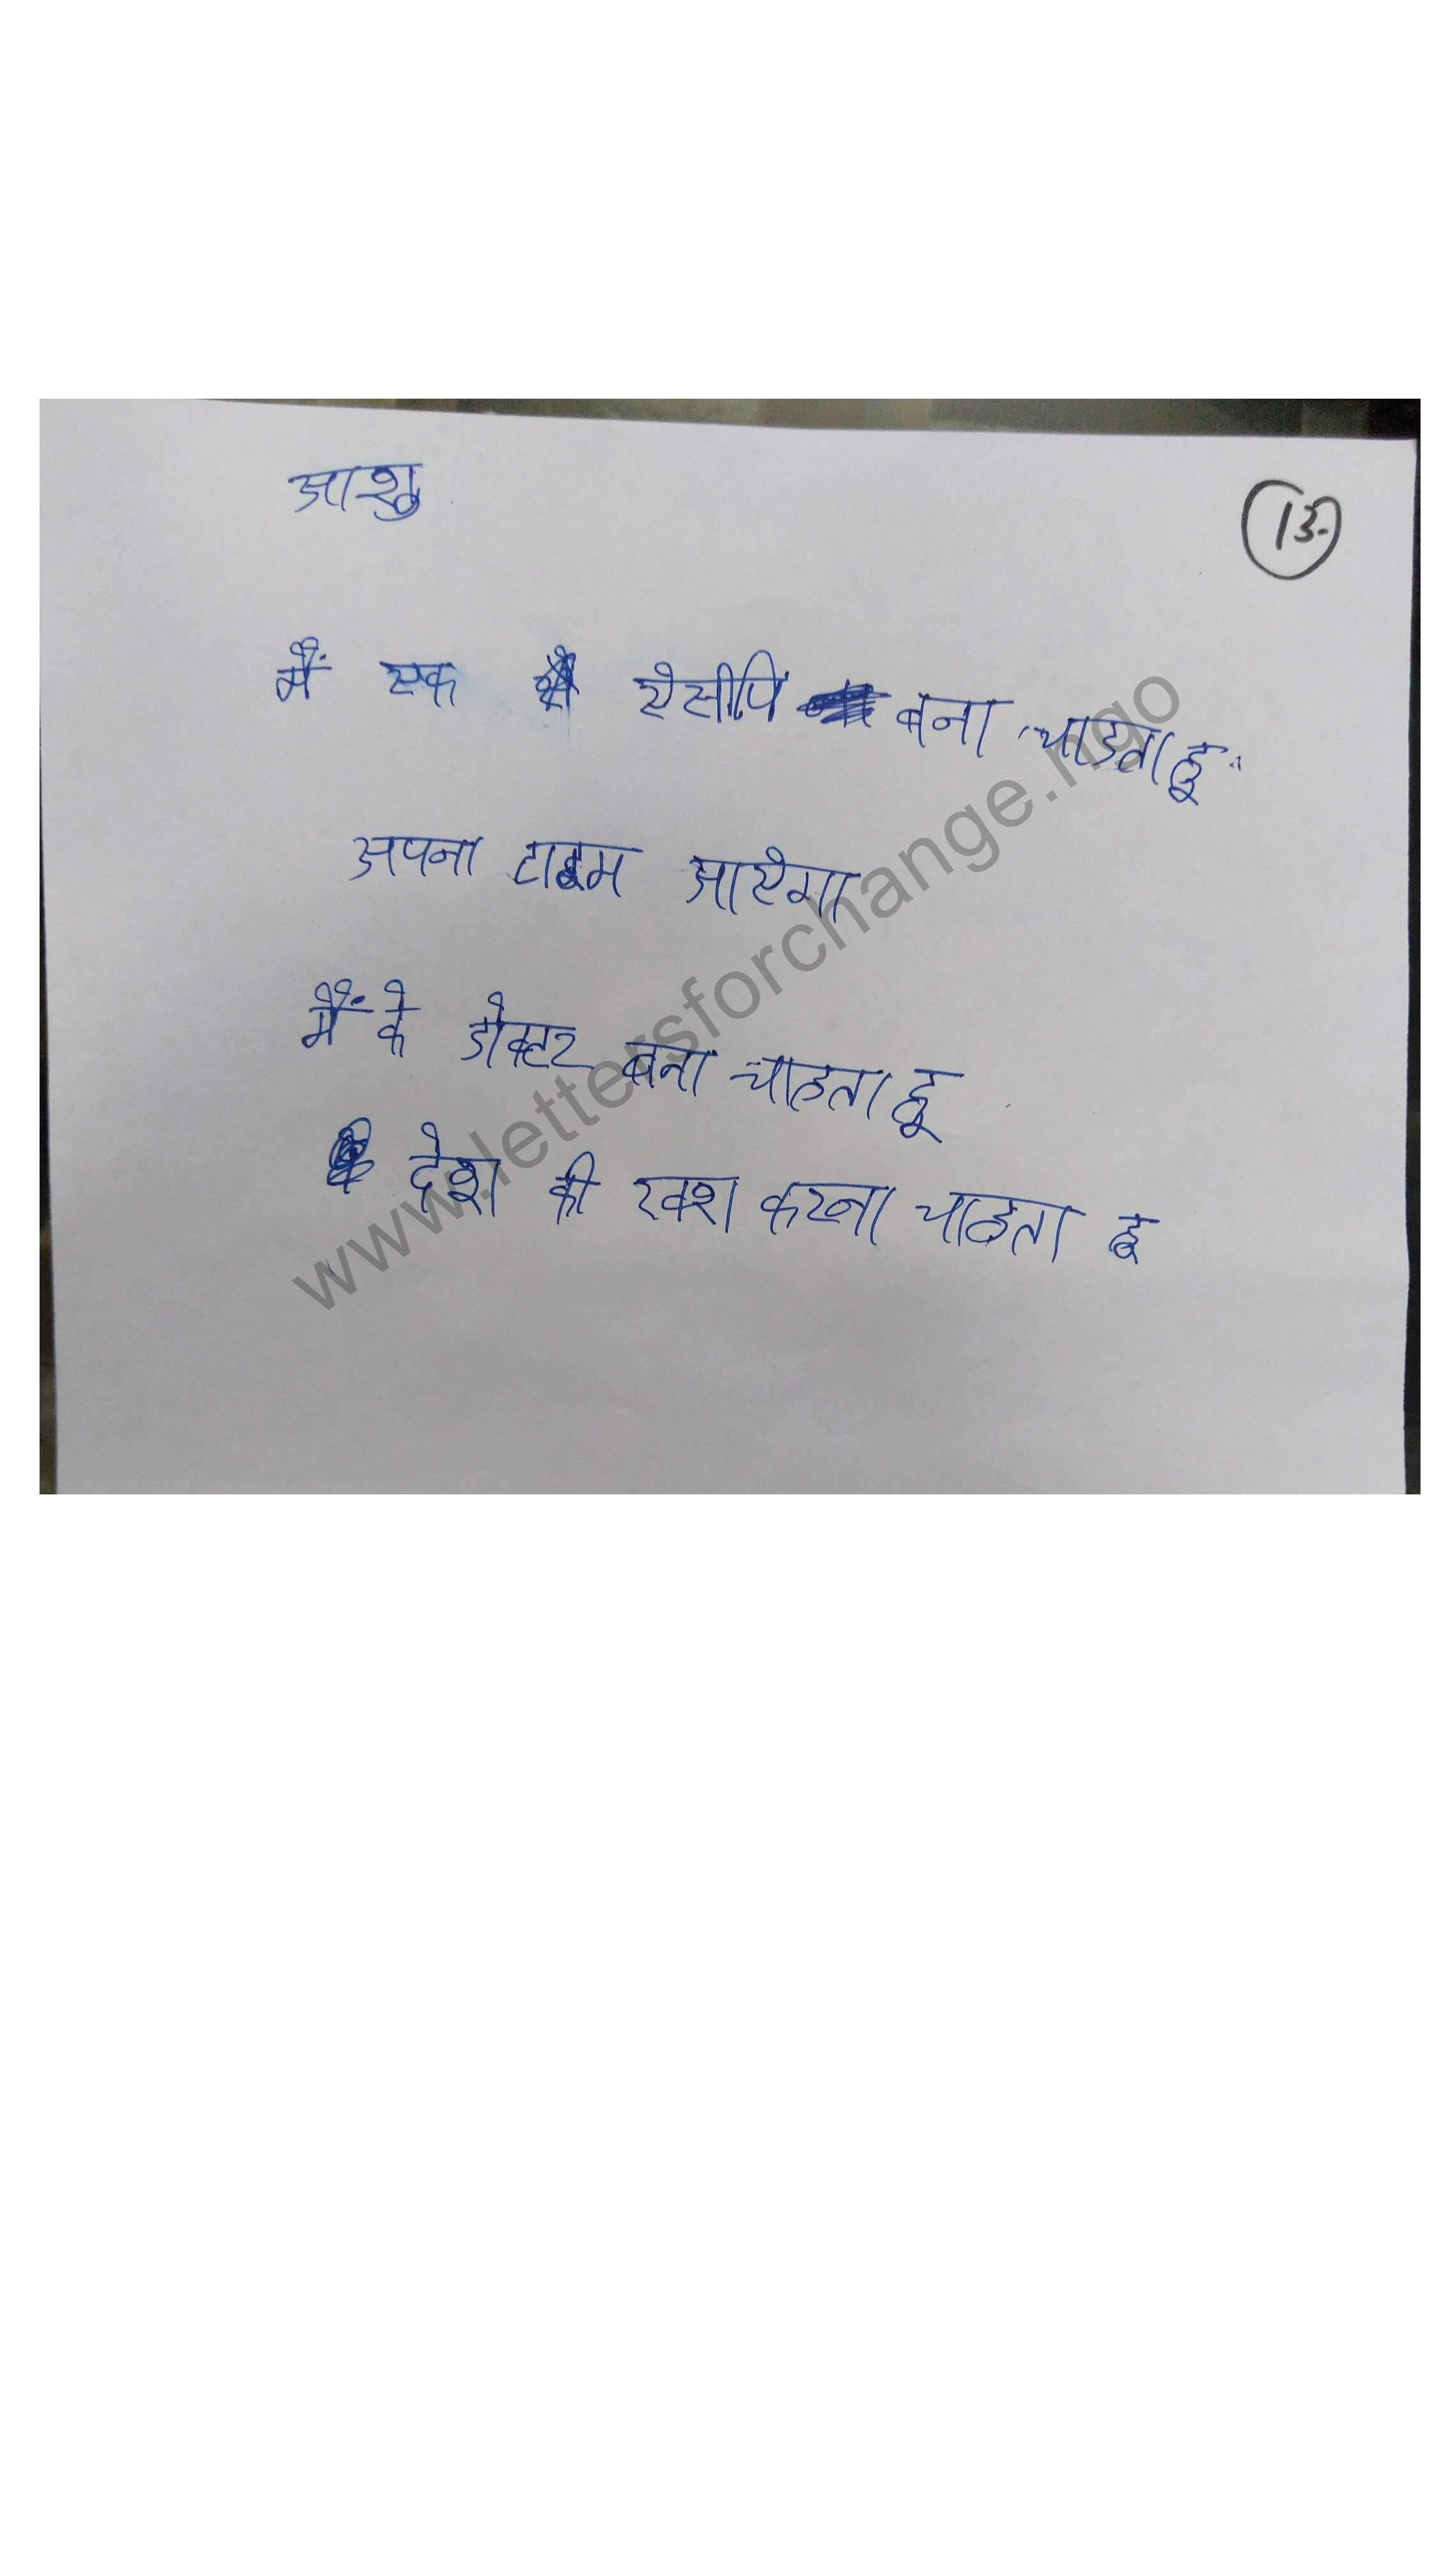 आशु
13.
मैं एक ऐसीपि बना चाहता हू
अपना टाइम आऐगा
मैं के डोक्टर बना चाहता हू
देश की रक्श करना चाहता हू
www.lettersforchange.ngo